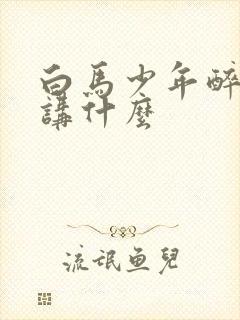 白馬少年醉
講什麼
流氓鱼兒